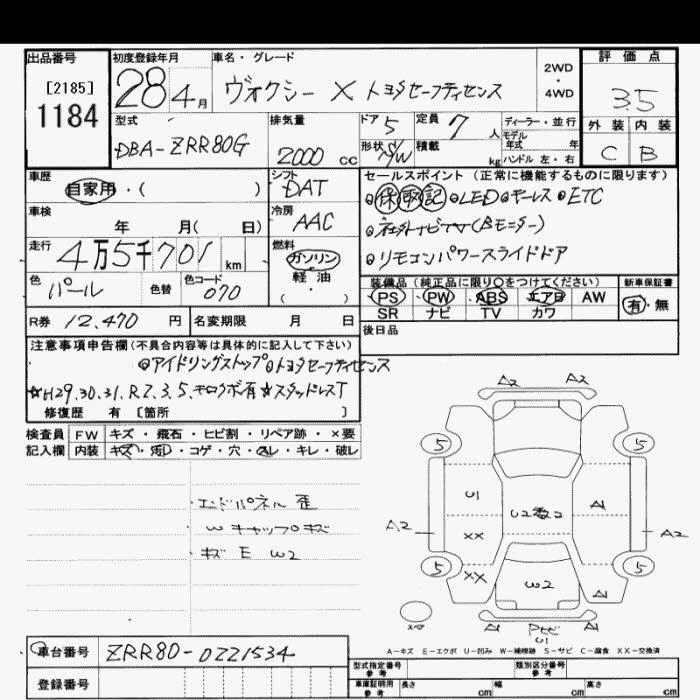 出品番号 初度登録年月 車名・グレード 評価点
[2185]
1184
28年4月 ヴォクシー X トヨタセーフティセンス 2WD・4WD 3.5
型式 排気量 ドア 5 定員 7 人 ディーラー・並行 外装 内装
DBA-ZRR80G 2000 cc 形状 S/W 積載 kg モデル年式 年 ハンドル 左・右 C B
車歴 シフト セールスポイント(正常に機能するものに限ります)
自家用・( ) DAT 保 取 記 LED キーレス ETC
車検 年 月( 日) 冷房 AAC 社外ナビTV(Bモニター)
走行 4万5千701 km 燃料 ガソリン 軽・油 ・( ) リモコンパワースライドドア
色 パール 色替 色コード 070
装備品(純正品に限り〇をつけてください) 新車保証書
PS PW ABS エアB AW 有・無
SR ナビ TV カワ
R券 12,470 円 名変期限 月 日 後日品
注意事項申告欄(不具合内容等は具体的に記入して下さい)
アイドリングストップ トヨタセーフティセンス
☆H29.30.31.R2.3.5.キロクボ有 ☆スタッドレスT
修復歴 有 [箇所 ]
検査員 FW キズ・飛石・ヒビ割・リペア跡・×要
記入欄 内装 キズ・汚レ・コゲ・穴・スレ・キレ・破レ
エンドパネル 歪
W キャップ キズ
キズ E W2
A2 A2
5 5
U1 A1
A2 U2数2 A2
XX
5 XX W2 A1 5
A1 A1
U1
A-キズ E-エクボ U-凹み W-補修跡 S-サビ C-腐食 XX-交換済
車台番号 ZRR80-0221534
登録番号
型式指定番号 参考 類別区分番号 参考
車庫証明用 参考 長さ cm 幅 cm 高さ cm